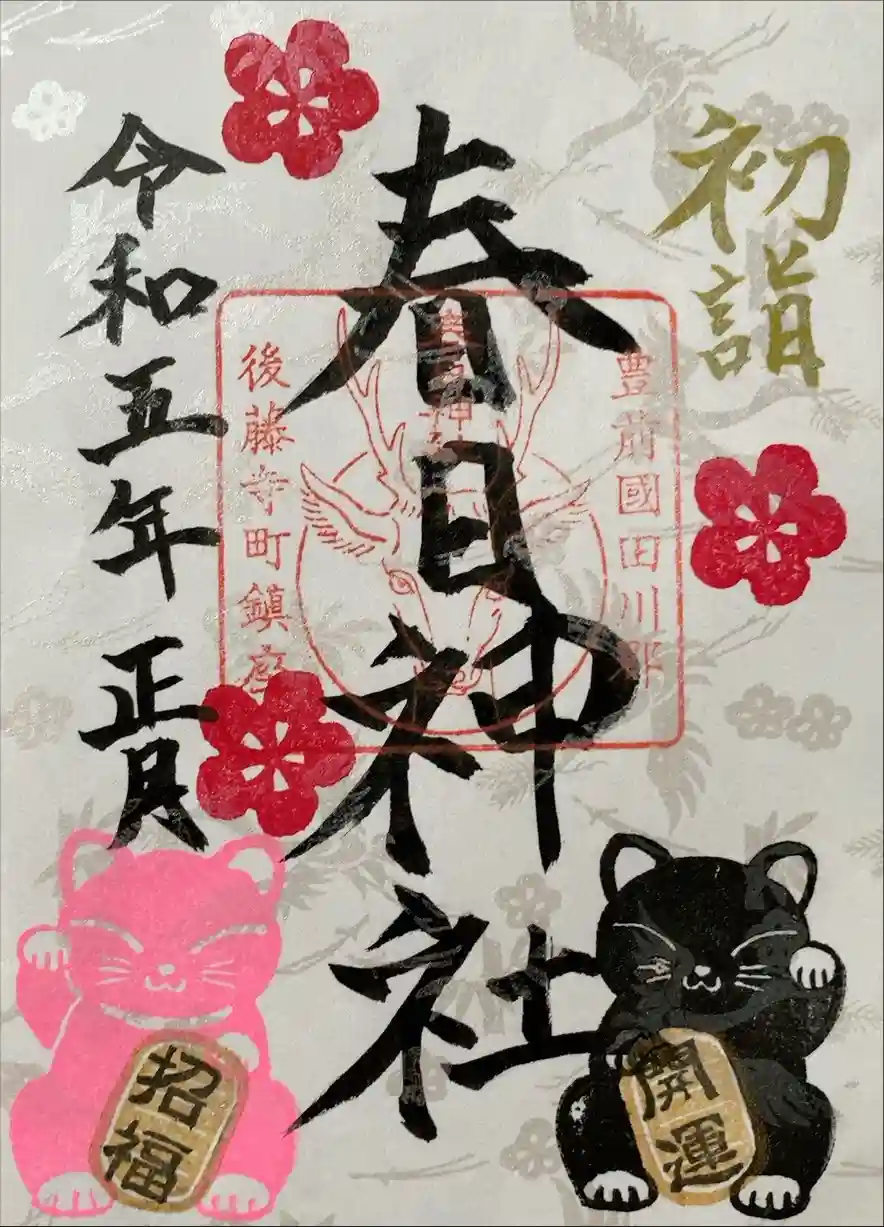 初詣
豊前國田川郡
春日神社
春日神社
後藤寺町鎮座
令和五年正月
招福
開運